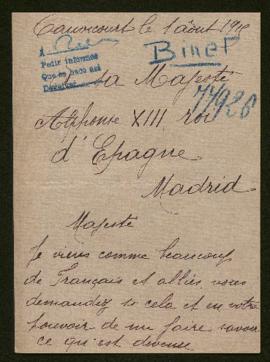 le 1 août 191
Binet
A
Pedir informes
Que se hace así
77926
Sa Majesté
Alphonse XIII roi
d'Epagne
Madrid
Majesté
Je viens comme beaucoup
de Français et alliés vous
demandez si cela et en votre
pouvoir de me faire savoir
ce qu'est devenue